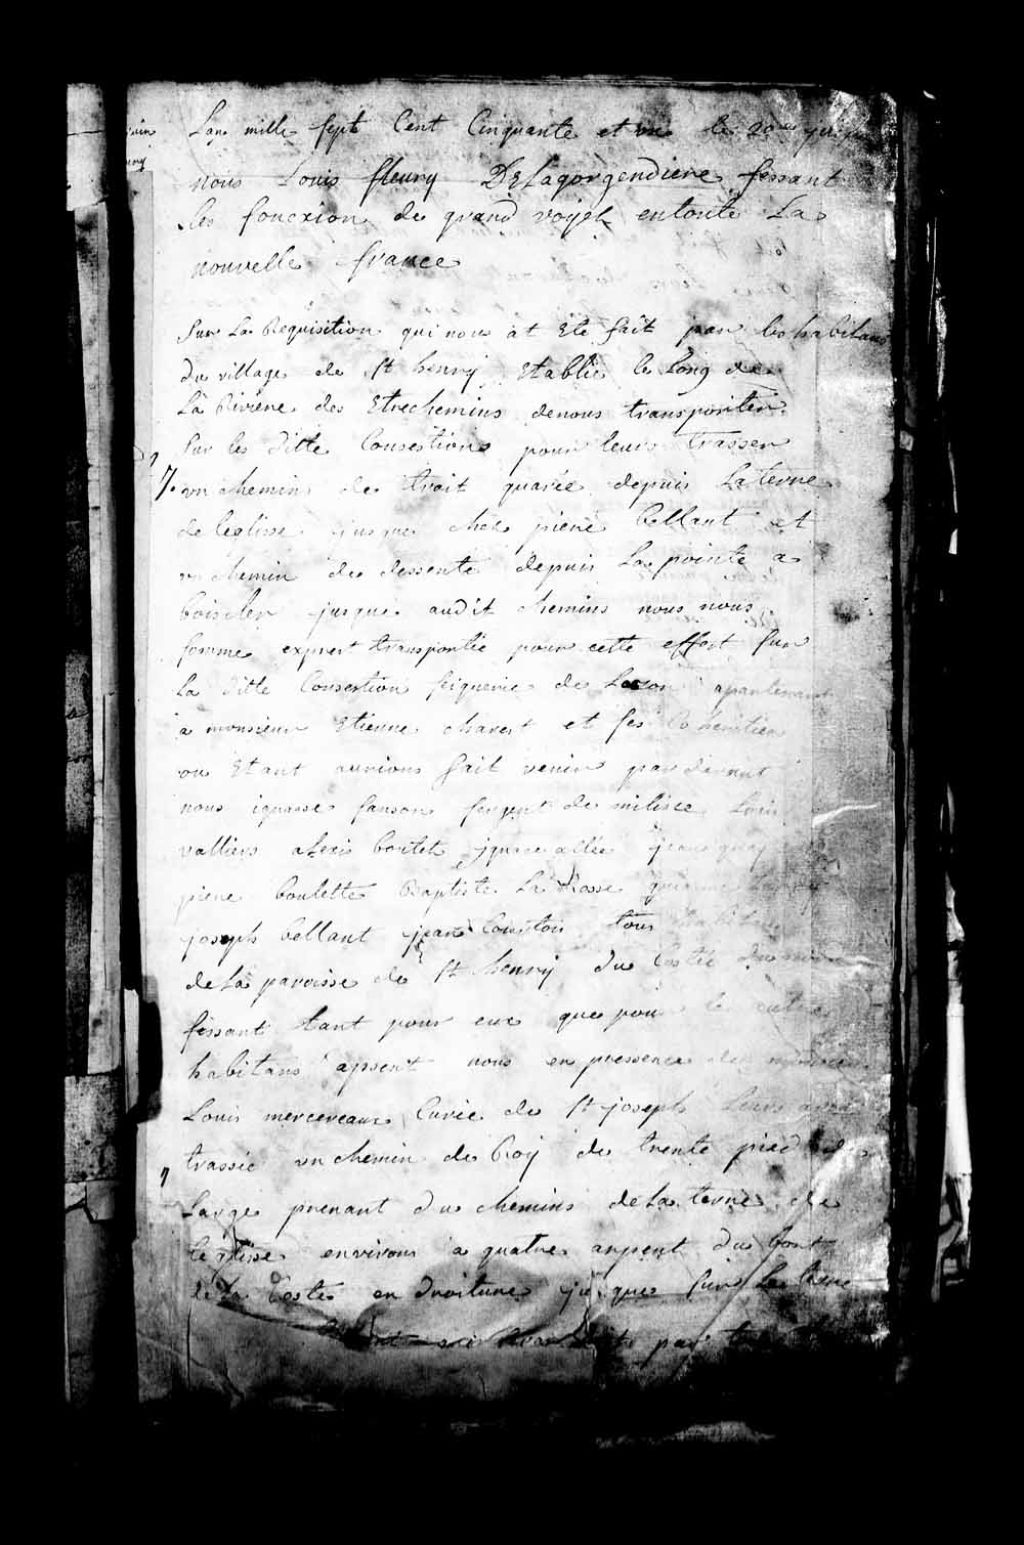 Lan mille sept Cent Cinquante et un le 20me
nous Louis fleury DELagorgendiere fessant
les foncxion de grand voyer entoute La
nouvelle france
Sur La Requisition qui nous at Ete fait par les habitans
Du village de St henry Etablie le Long de
La Riviere des Etrechemins denous transporter
Sur les ditte Consestions pour leurs trasser
un chemin de troit quarée depuis La terre
de leglisse jusque ches piere bellant et
un chemin de dessente depuis La pointe a
boiscler jusque audit chemins nous nous
somme exprest transportée pour cette effest sur
La ditte Consestion seigneurie de Lozon apartenant
a monsieur Etienne charest et ses Coheritier
ou Etant aurions fait venir par devant
nous ignasse sanson sergent de milisce Louis
valliers alexis boutet jgnace allée jean guay
piere boulette Baptiste La Rosse
joseph bellant jean Courtois tous
deLa paroisse de St henry du Costé du
fessant tant pour eux que pour les autres
habitans apsent nous en pressence de monsieur
Louis mercereaux Curée de St joseph Leurs avons
trassée un chemin de Roy de trente pied de
Large prenant du chemins deLa terre de
leglisse environs a quatre arpent du bout
de La Coste en droiture jusques sur La terre
par